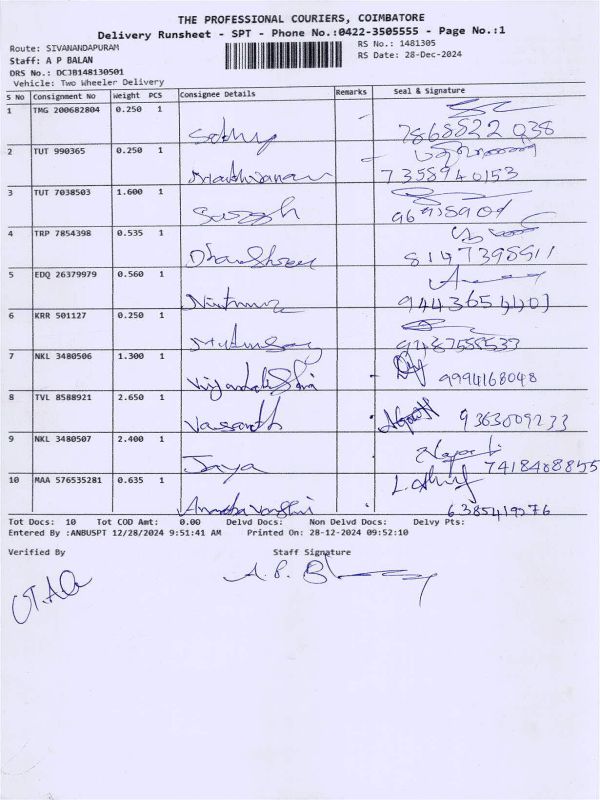 THE PROFESSIONAL COURIERS, COIMBATORE
Delivery Runsheet - SPT - Phone No.:0422-3505555 - Page No.:1
Route: SIVANANDAPURAM
RS No.: 1481305
Staff: A P BALAN
RS Date: 28-Dec-2024
DRS No.: DCJB148130501
Vehicle: Two Wheeler Delivery
S No Consignment No Weight PCS Consignee Details Remarks Seal & Signature
1 TMG 200682804 0.250 1
2 TUT 990365 0.250 1 7358940153
3 TUT 7038503 1.600 1
4 TRP 7854398 0.535 1 8147398911
5 EDQ 26379979 0.560 1
6 KRR 501127 0.250 1
7 NKL 3480506 1.300 1 9994168048
8 TVL 8588921 2.650 1 Vasanth 9363009233
9 NKL 3480507 2.400 1 Jaya 7418488855
10 MAA 576535281 0.635 1 6385419376
Tot Docs: 10 Tot COD Amt: 0.00 Delvd Docs: Non Delvd Docs: Delvy Pts:
Entered By :ANBUSPT 12/28/2024 9:51:41 AM Printed On: 28-12-2024 09:52:10
Verified By Staff Signature